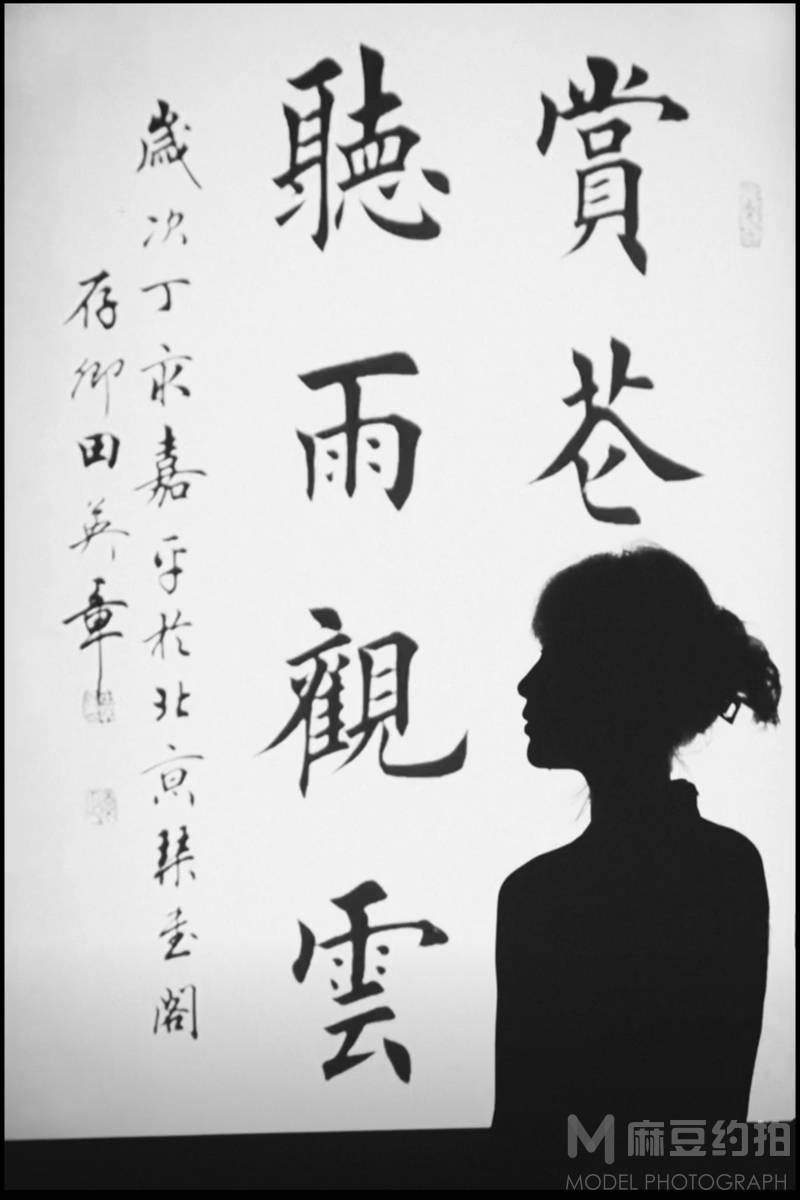 賞芲
聽雨觀雲
歲次丁亥嘉平於北京琴书阁
存卿田英章
麻豆约拍
MODEL PHOTOGRAPH